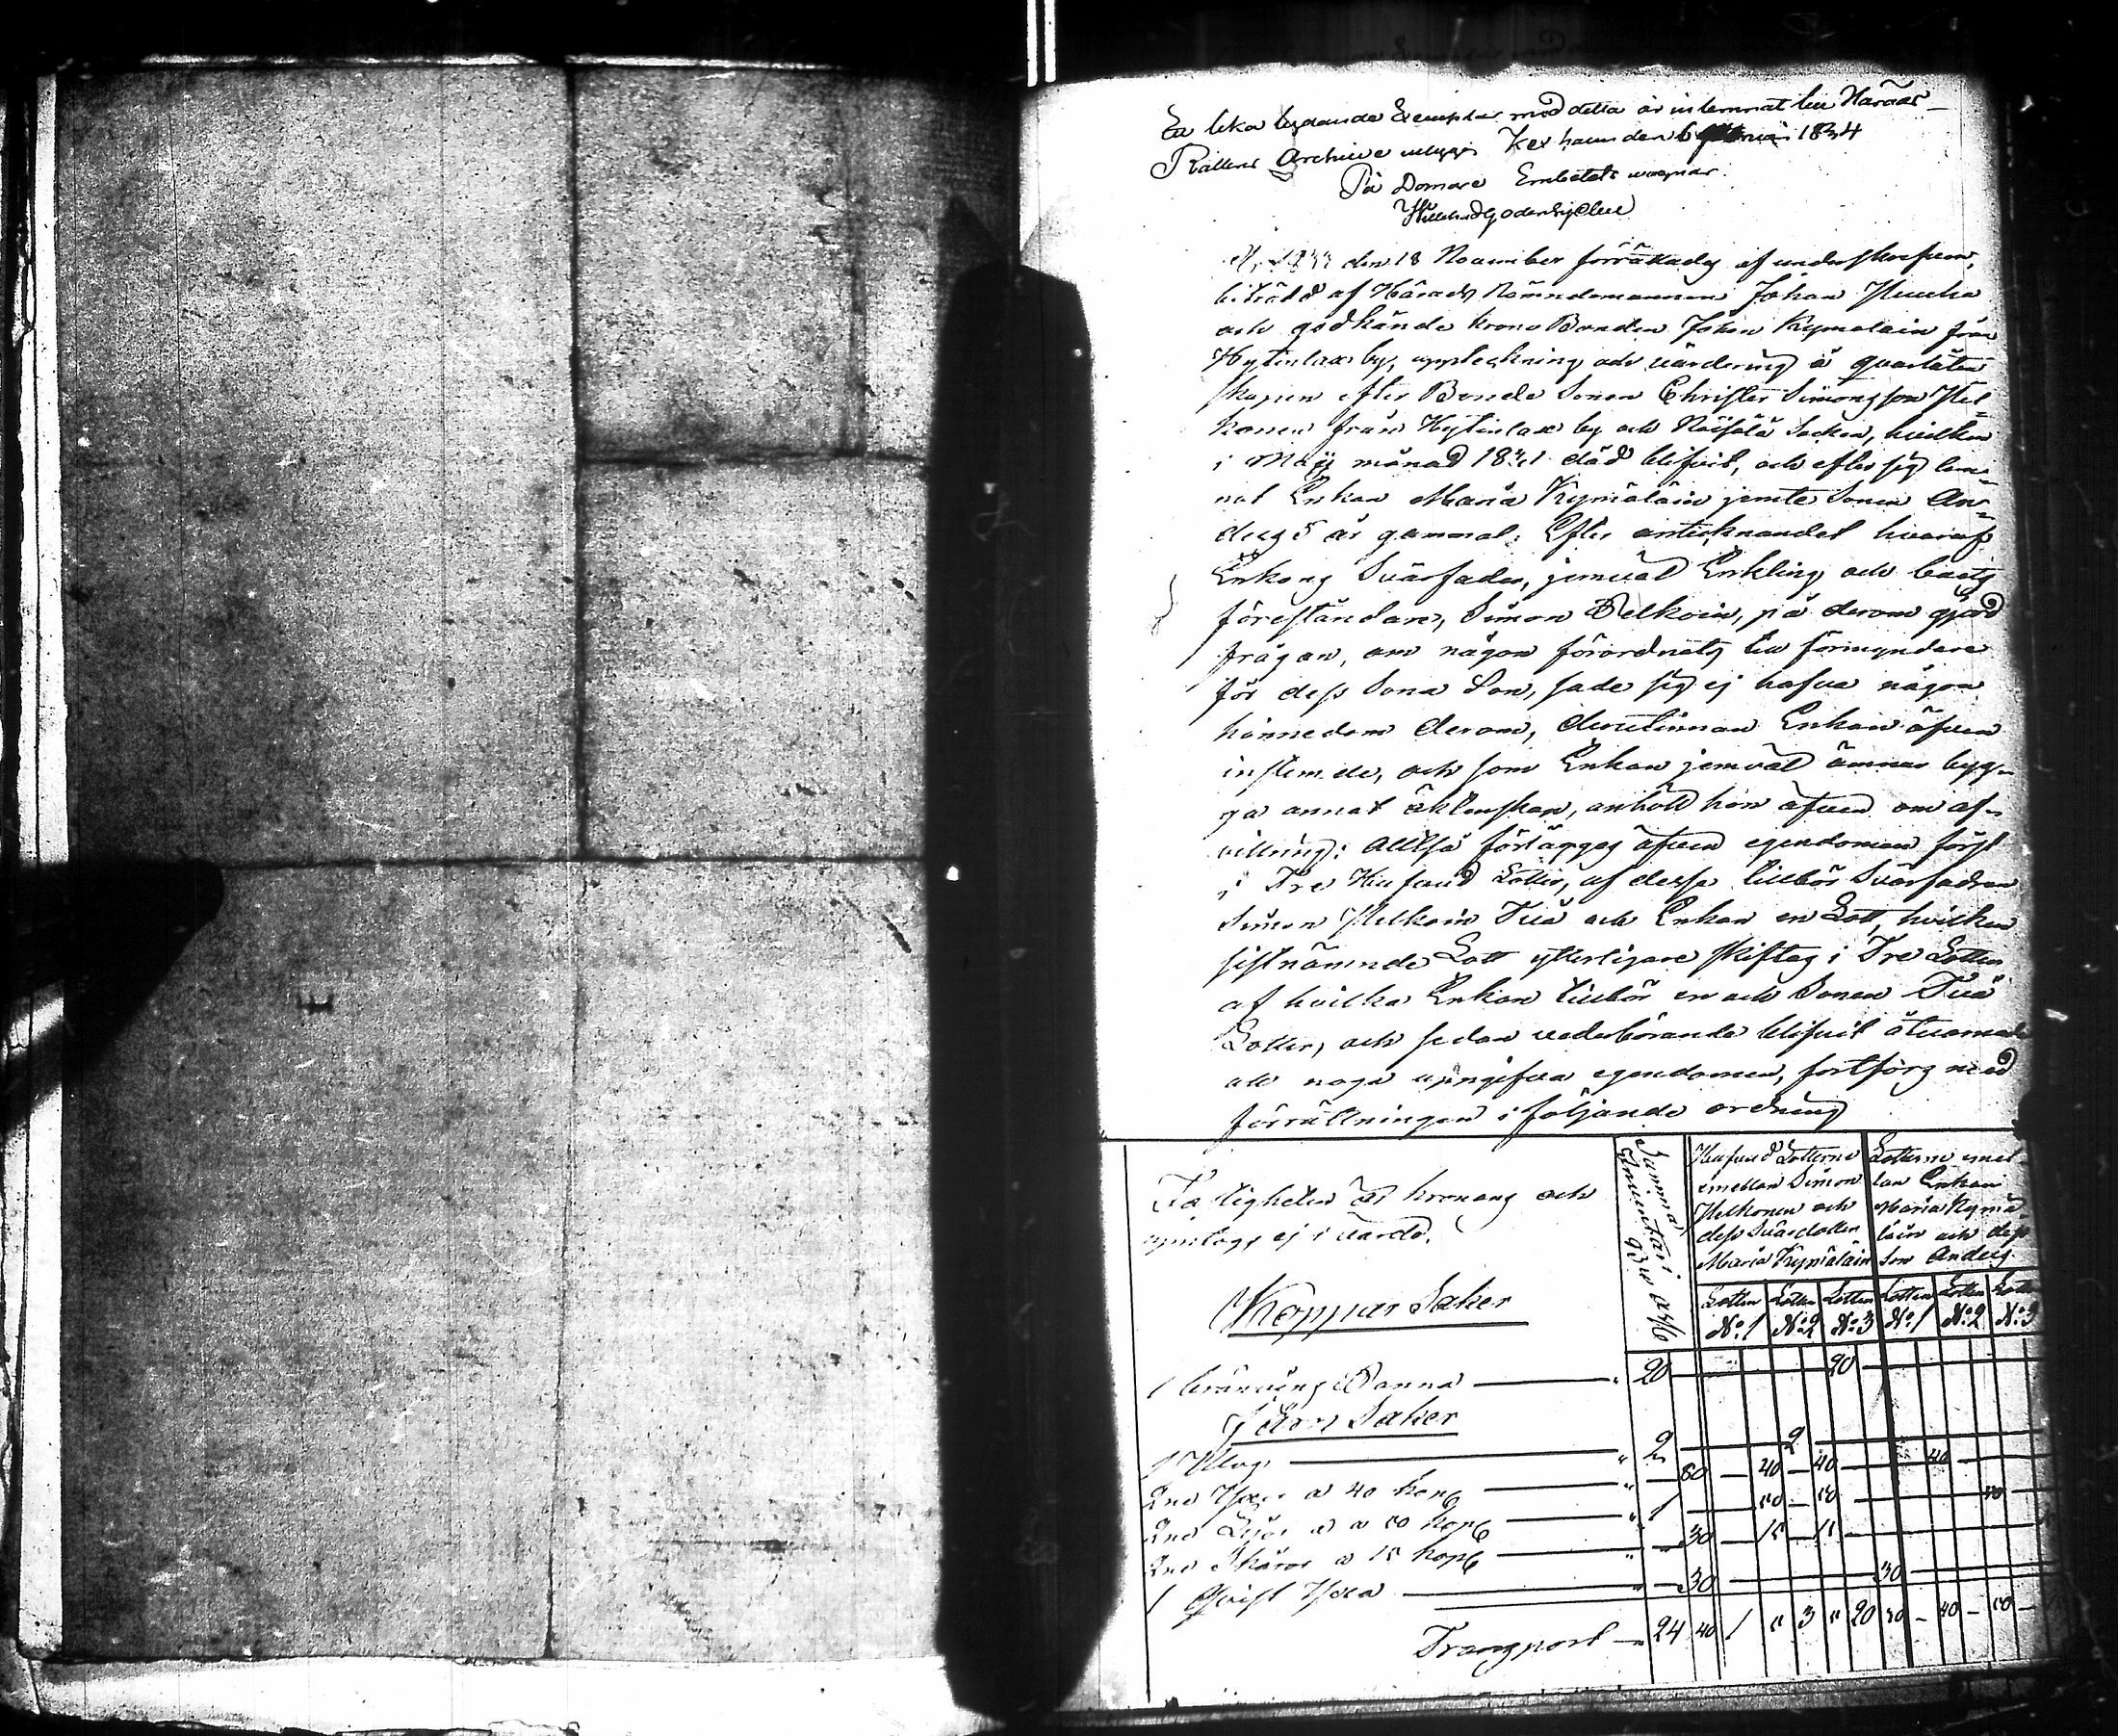 En lika lydande Exemplar med detta är inlemnat till Härads
Rättens Archive intygas Kexholm den 6 1834
På Domare Embetets vägnar
År 1833 den 18 November förrättades af underskrefven,
biträdd af Härads Nämndemannen Johan
och godkände krono Bonden Johan Kymäläin från
Hytinlax by, uppteckning och värdering å quarlåten
skapen efter Bonde Sonen Christer Simonsson Pel=
konen från Hytinlax by och Räisälä Socken, hvilken
i Maji månad 1831 död blifvit, och efter sig lem=
nat Enkan Maria Kymäläin jemte Sonen An=
ders 5 år gammal: Efter antecknandet hvaraf
Enkans Svärfader, jemväl Enkling och
föreståndare, Simon Pelkoin, på derom gjord
frågan, om någon förordnats till förmyndare
för dess Sona Son, sade sig ej hafva någon
kännedom derom, derutinnan Enkan äfven
instemde, och som Enkan jemväl ämnar byg=
ga annat äktenskap, anhöll hon äfven om af=
vittring: Alltså förlägges äfven egendomen först
i Tre Hufvud Lotter, af dessa tillhör Svärfadren
Simon Pelkoin Två och Enkan en Lott, hvilken
sistnämnde Lott ytterligare skiftas i Tre Lotter
af hvilka Enkan tillhör en och Sonen Två
Lotter, och sedan vederbörande blifvit åtvarnade
att noga uppgifva egendomen, fortförs med
förrättningen i följande ordning
Fastigheten är kronans och
upptogs ej i värde.
Summa
Inventari
Hufvud Lotterne
emellan Simon
Pelkonen och
dess Svärdotter
Maria Kymäläin
Lotterne emel=
lan Enkan
Maria Kymä
läin och dess
Son Anders
Lotten N:o 1 Lotten N:o 2 Lotten N:o 3 Lotten N:o 1 Lotten N:o 2 Lotten N:o 3
Koppar Saker
1 bränvins Panna — 20 — 20
Järn Saker
1 Plog — 2 — 2
2ne Yxor a 40 kop — 80 — 40 — 40 — 40
2ne Liar a 50 kop — 1 — 50 — 50 — 50
2ne Skäror a 15 kop — 30 — 15 — 15
1 Qvist Yxa — 30 — 30
Transport — 24 40 1 5 3 5 20 30 — 40 — 50 —